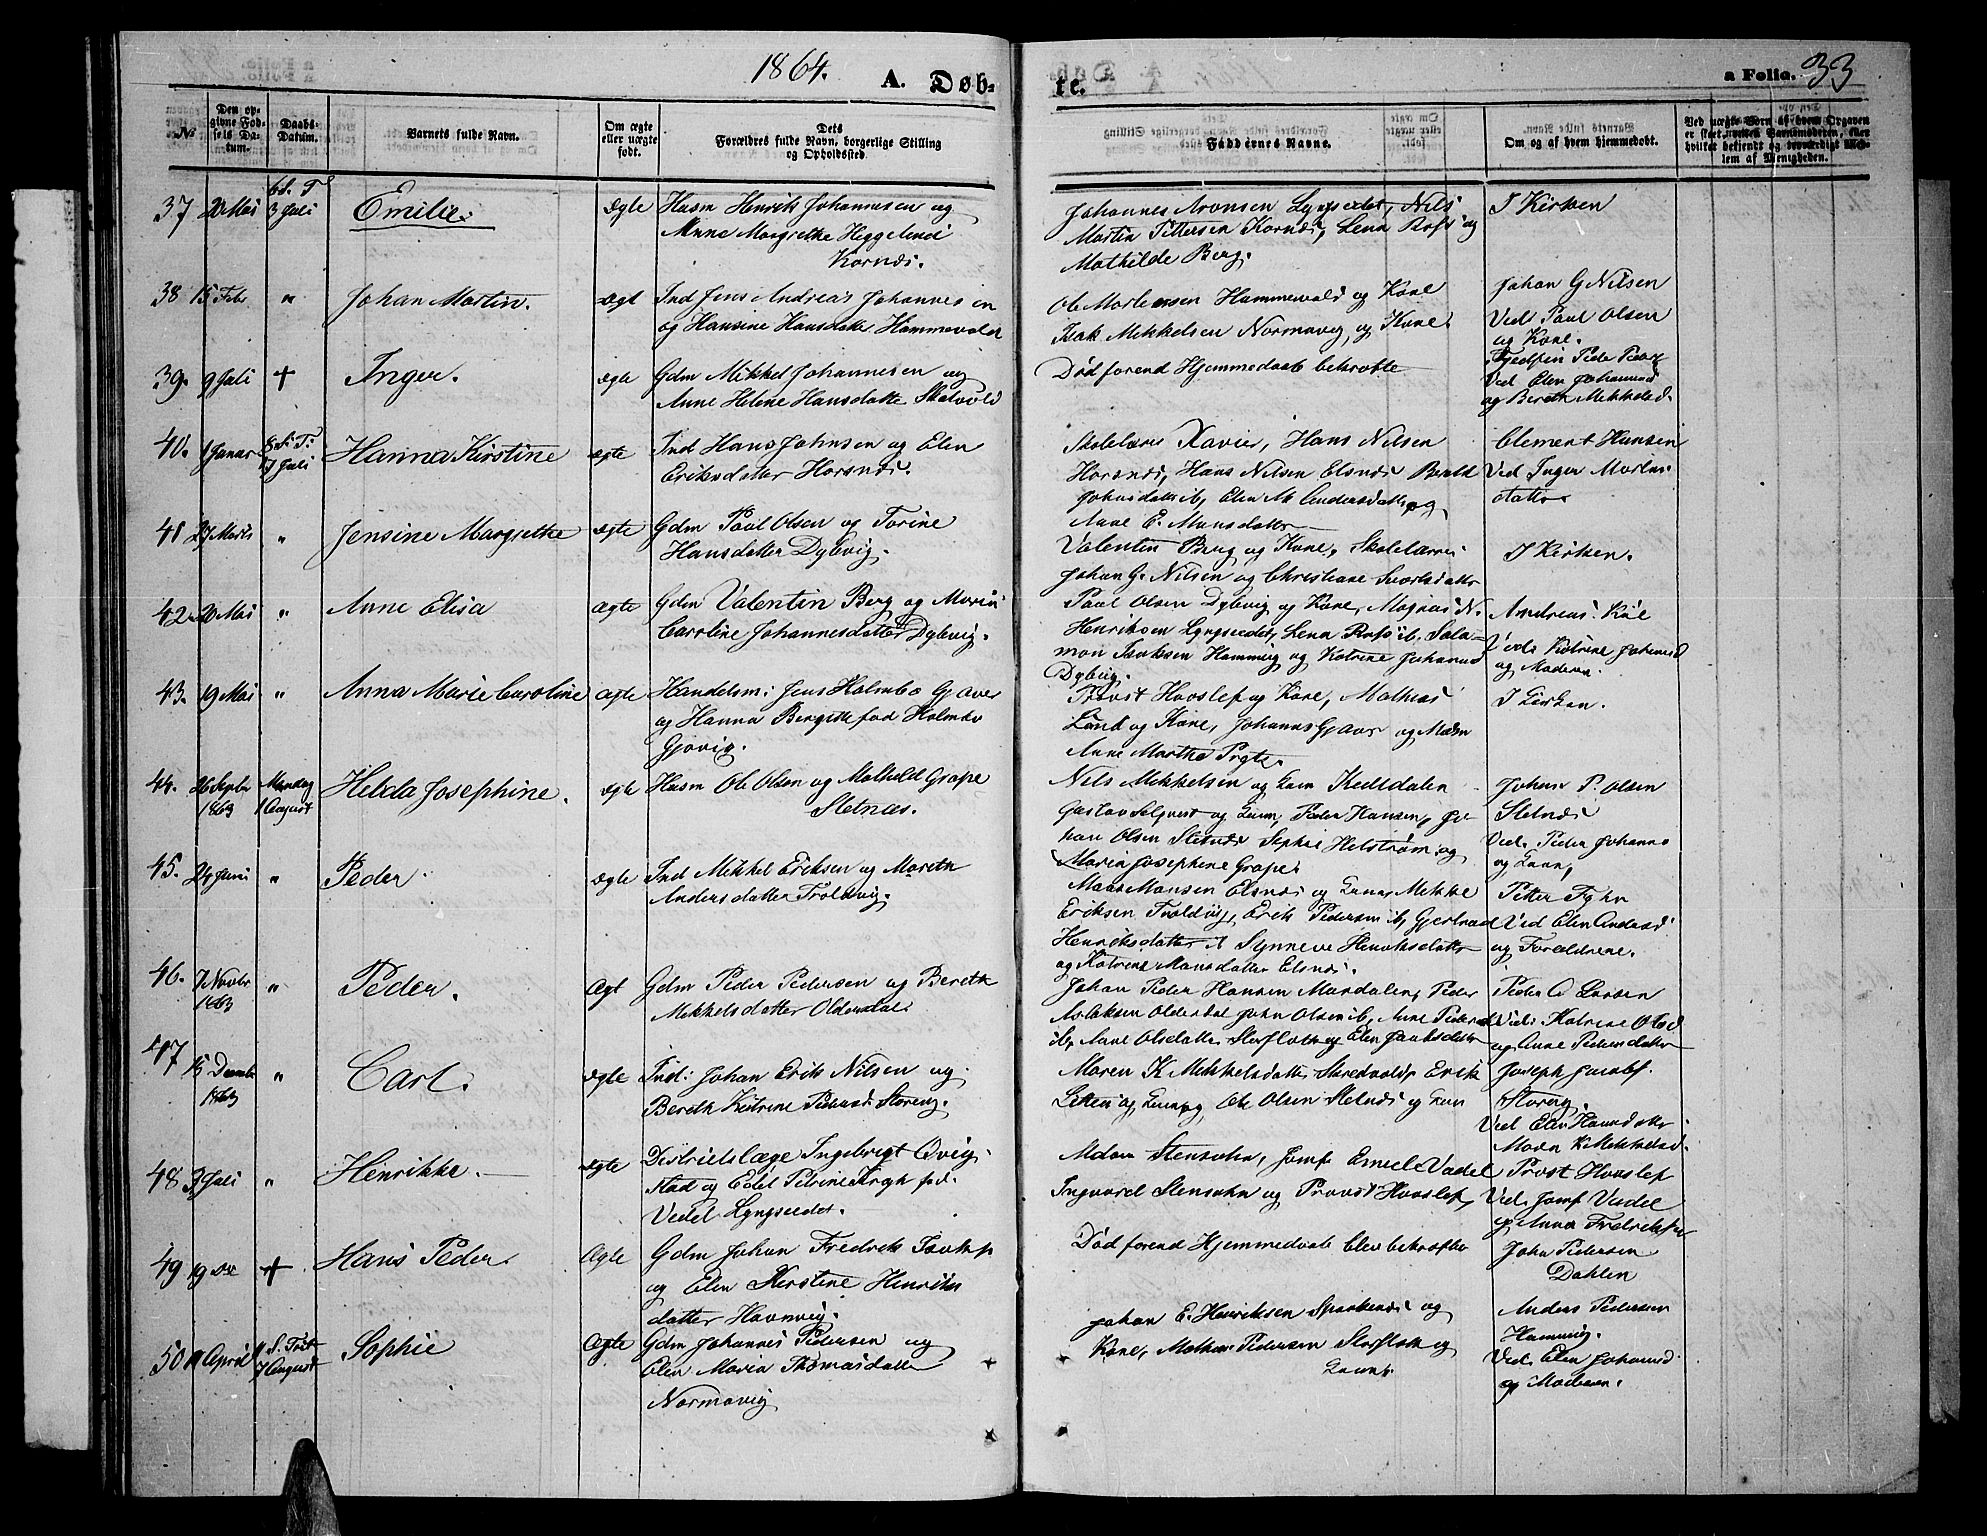 1864.
A. Døb-
te.
a Folio. 33
№
Den op-
givne Fød-
sels Da-
tum.
Daabs-
Datum.
Barnets fulde Navn.
Om ægte
eller uægte
født.
Dets
Forældres fulde Navn, borgerlige Stilling
og Opholdssted.
Faddernes Navne.
Om og af hvem hjemmedøbt.
Ved uægte Børn af hvem Opgaven
er skeet, hvilket bekjendt og
troværdigt Med-
lem af Menigheden.
37 20 Mai 6 S. T. 3 Juli Emilie. ægte
Husm Henrik Johannesen og
Anne Margrethe Heggelund
Kornæs.
Johannes Aronsen Lyngseidet, Nils
Martin Pettersen Kornæs, Lena Rafs og
Mathilde Berg.
I Kirken
38 15 Febr " Johan Martin. ægt
Ind Jens Andreas Johannesen
og Hansine Hansdatter Hammevold
Ole Mortensen Hammevold og Kone
Isak Mikkelsen Normavig, og Kone.
Johan G Nilsen
Ved Paul Olsen
og Kone.
39. 9 Juli + Inger. ægte
Gdm Mikkel Johannesen og
Anne Helene Hansdatter Skalvold
Død forend Hjemmedaab bekræfte
Ved Elen Johannesd
og Bereth Mikkelsd.
40. 1 Januar 8 S. T. 17 Juli Hanna Kirstine ægte
Ind Hans Johnsen og Elen
Eriksdatter Horsnæs.
Skolelærer Xavier, Hans Nilsen
Horsnæs, Hans Nilsen Elsnæs Bereth
Johnsdatter ib, Elen M Andersdatter og
Anne E. Monsdatter
Clement Hansen
Ved Inger Mortens
datter
41 27 Marts " Jensine Margrethe ægte
Gdm Paul Olsen og Torine
Hansdatter Dybvig.
Valentin Berg og Kone, Skolelærer
Johan G. Nilsen og Christiane
I Kirken.
42 20 Mai " Anne Elisa ægte
Gdm Valentin Berg og Maria
Caroline Johannesdatter Dybvig.
Paul Olsen Dybvig og Kone, Magnus N.
Henriksen Lyngseidet, Lena Rafs ib. Sala-
mon Isaksen Hamnvig og Katrine Johannesd
Dybvig.
Andreas Kiil
Ved Katrine Johannesd
og Moderen.
43. 19 Mai " Anna Marie Caroline ægte
Handelsm: Jens Holmbo Gjæver
og Hanna Bergitte fød Holmbo
Gjøvig.
Provst Hvoslef og Kone, Mathias
Lund og Kone, Johannes Gjæver og Mdm
Anne Marthe
I Kirken.
44. 26 Septbr 1863 Mandag 1 August Helda Josephine. ægte
Husm Ole Olsen og Mathild Grape
Stelnæs.
Nils Mikkelsen og Kone Kedsdalen
Gustav Selquist og Kone, Peder Hansen, Jo-
han Olsen Stelnæs Sophie Helstrøm og
Maria Josephine Grape.
Johan P. Olsen
Stelnæs
Ved Peder Johanns
og Kone,
45. 24 Juni " Peder ægte
Ind Mikkel Eriksen og Mareth
Andersdatter Troldvig.
Mons Monsen Elsnæs og Kone, Mikkel
Eriksen Troldvig, Erik Pedersen ib, Gjertrud
Henriksdatter, Synneve Henriksdatter
og Katrine Monsdatter Elsnæs.
Petter Fyhn
Ved Elen Andersd
og Forældrene.
46. 7 Novbr 1863 " Peder. ægt
Gdm Peder Pedersen og Bereth
Mikkelsdatter Olderdal.
Johan Peder Hansen Mandalen, Peder
Aslaksen Olderdal John Olsen ib, Anne Pedersd
ib, Anne Olsdatter Storfloth og Elen Jacobsdatter
Peder A Larsen
Ved Katrine Olsd
og Anne Pedersdatter
47 15 Decmbr 1863 " Carl. ægte
Ind: Johan Erik Nilsen og
Bereth Katrine Pedersd Storeng.
Maren K Mikkelsdatter Skredvold, Erik
og Kone, Ole Olsen Stelnæs og Kone
Joseph Jacobs.
Storeng.
Ved Elen Hansdatter
Maren K Mikkelsd.
48 3 Juli " Henrikke. ægte
Districtslæge Ingebrigt Qvig-
stad og Edel Petrine Krogh fød.
Vedel Lyngseidet.
Mdm Stensohn, Jomf Emelie Vedel
Ingvard Stensohn og Provst Hvoslef,
Provst Hvoslef
Ved Jomf Vedel
og Anna Fredriksen
49 19 + Hans Peder. ægte
Gdm Johan Fredrik Isaks
og Elen Kirstine Henriks
datter Havnvig.
Død forend Hjemmedaab blev bekræftet
John Pedersen
Dahlen
50 11 April 11 S. Trit 7 August Sophie ægte
Gdm Johannes Pedersen og
Elen Maria Thomasdatter
Normavig
Johan E. Henriksen Spaakenæs og
Kone, Mathias Pedersen Storfloth og
Kone.
Anders Pedersen
Hamnvig.
Ved Elen Johannesd
og Moderen.